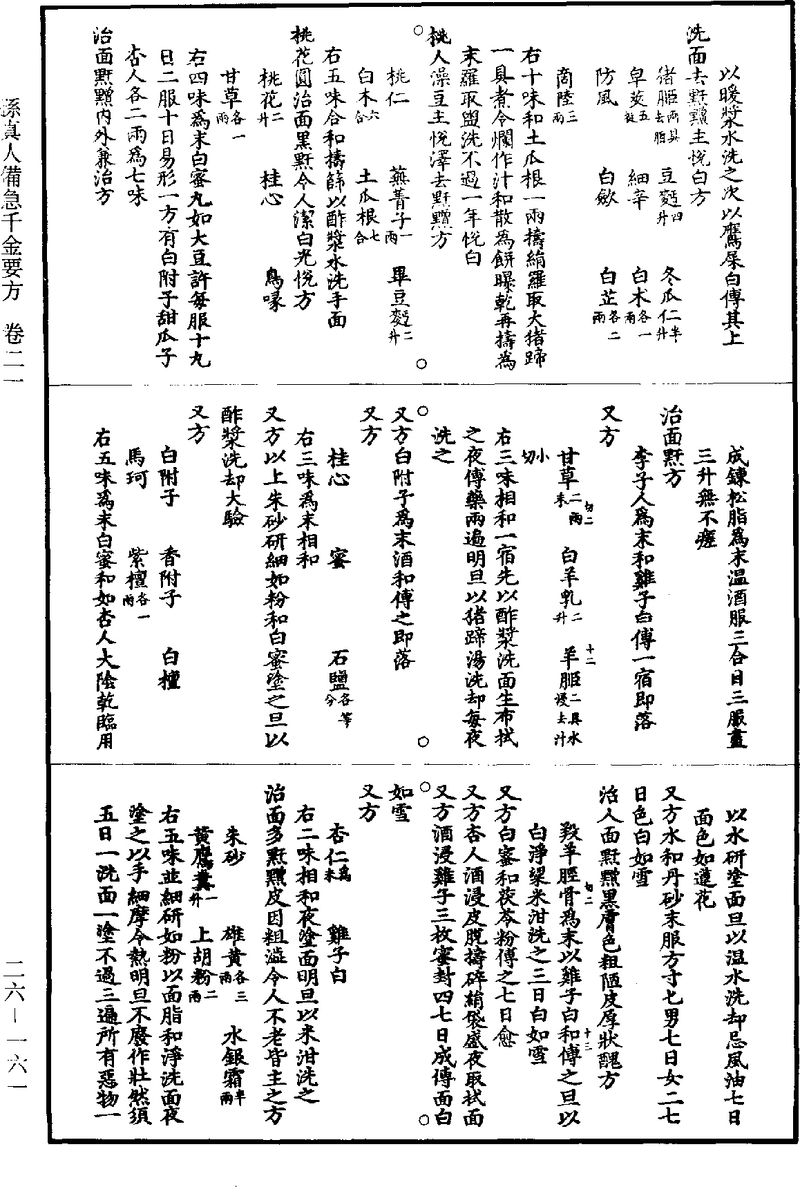 孫真人備急千金要方　卷二一
二六－一六一
以暖漿水洗之次以鷹屎白傅其上
洗面去䵟䵳主悅白方
猪胰兩具去脂　豆麪四升　冬瓜仁半升
皁莢五挺　細辛　白朮各一兩
防風　白歛　白芷各二兩
商陸三兩
右十味和土瓜根一兩擣絹羅取大猪蹄
一具煮令爛作汁和散為餅曝乾再擣為
末羅取盥洗不過一年悅白
桃人澡豆主悅澤去䵟䵳方
桃仁　蕪菁子一兩　畢豆麪二升
白木六合　土瓜根七合
右五味合和擣篩以酢漿水洗手面
桃花圓治面黑䵟令人潔白光悅方
桃花二升　桂心　烏喙
甘草各一兩
右四味為末白蜜丸如大豆許每服十丸
日二服十日易形一方有白附子甜瓜子
杏人各二兩為七味
治面䵟䵳內外兼治方
成鍊松脂為末溫酒服三合日三服盡
三升無不瘥
治面䵟方
李子人為末和雞子白傅一宿即落
又方
甘草二兩末　白羊乳二升　羊胰二具水浸去汁
小切
右三味相和一宿先以酢漿洗面生布拭
之夜傅藥兩遍明旦以猪蹄湯洗却每夜
洗之
又方白附子為末酒和傅之即落
又方
桂心　蜜　石鹽各等分
右三味為末相和
又方以上朱砂研細如粉和白蜜塗之旦以
酢漿洗却大驗
又方
白附子　香附子　白檀
馬珂　紫檀各一兩
右五味為末白蜜和如杏人大陰乾臨用
以水研塗面旦以溫水洗却忌風油七日
面色如蓮花
又方水和丹砂末服方寸匕男七日女二七
日色白如雪
治人面䵟䵳黑膚色粗陋皮厚狀醜方
羖羊脛骨為末以雞子白和傅之旦以
白淨粱米泔洗之三日白如雪
又方白蜜和茯苓粉傅之七日愈
又方杏人酒浸皮脫擣碎絹袋盛夜取拭面
又方酒浸雞子三枚密封四七日成傅面白
如雪
又方
杏仁為末　雞子白
右二味相和夜塗面明旦以米泔洗之
治面多䵟䵳皮因粗澁令人不老皆主之方
朱砂　雄黃各三兩　水銀霜半兩
黃鷹糞一升　上胡粉二兩
右五味並細研如粉以面脂和淨洗面夜
塗之以手細摩令熱明旦不廢作壯然須
五日一洗面一塗不過三遍所有惡物一